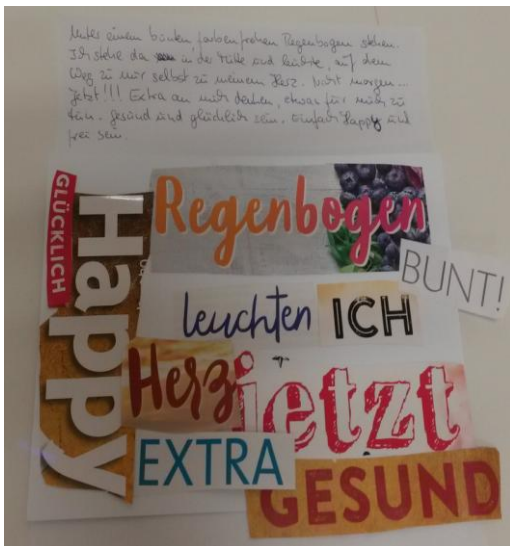 Unter einem bunten farbenfrohen Regenbogen stehen.
Ich stehe da in der Mitte und leuchte, auf dem
Weg zu mir selbst zu meinem Herz. Nicht morgen...
Jetzt!!! Extra an mich denken, etwas für mich zu
tun. Gesund und glücklich sein. Einfach Happy und
frei sein.
GLÜCKLICH
Happy
Regenbogen
BUNT!
leuchten ICH
Herz jetzt
EXTRA
GESUND